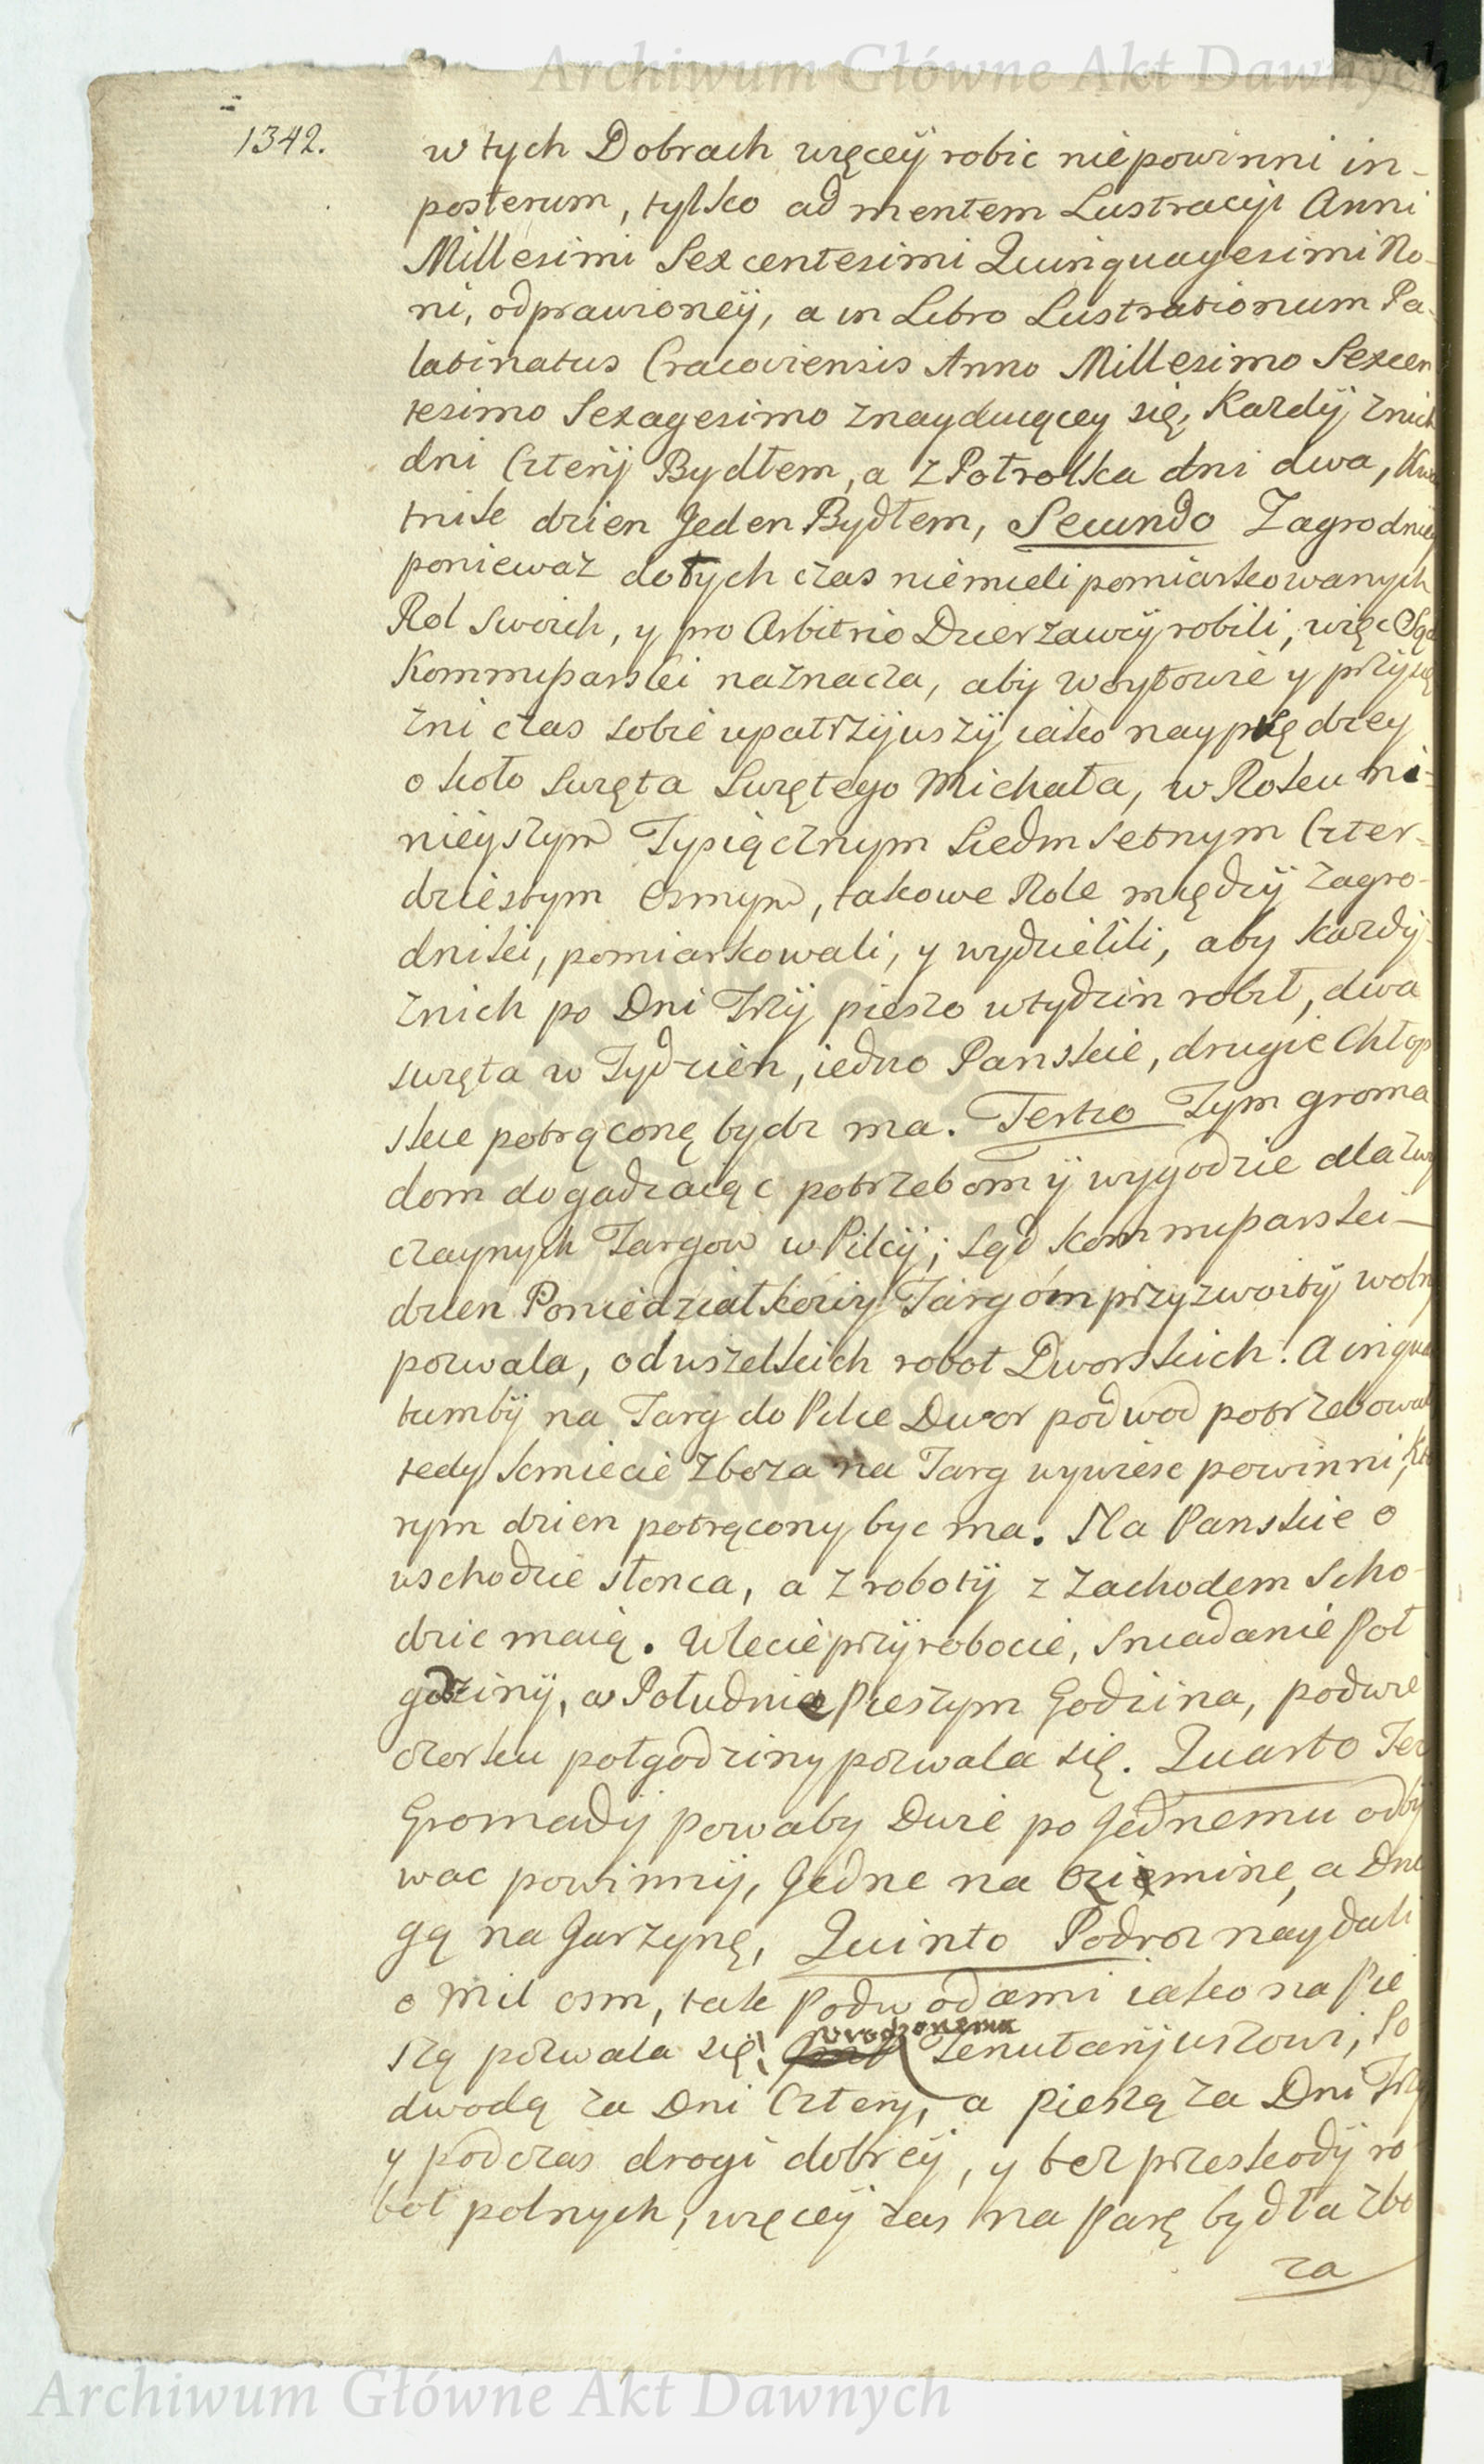 Archiwum Główne Akt Dawnych
1342.
w tych Dobrach więcey robic niepowinni in-
posterum, tylko ad mentem Lustracyi Anni
Millesimi Sexcentesimi Quinquagesimi No-
ni, odprawioney, a in Libro Lustrationum Pa-
latinatus Cracoviensis Anno Millesimo Sexcen
tesimo Sexagesimo znayduiącey się, Kazdy znich
dni Cztery Bydłem, a z Połrolka dni dwa,
tnik dzien Jeden Bydłem, Secundo Zagrodnicy
poniewaz dotych czas niemieli pomiarkowanych
Rol swoich, y pro Arbitrio Dzierzawcy robili, więc Sąd
Kommissarski naznacza, aby Woytowie y przysię
zni czas sobie upatrzywszy iako nayprędzey
około Swięta Swiętego Michała, w Roku ni-
nieyszym Tysiącznym Siedmsetnym Czter-
dziestym Osmym, takowe Role między Zagro-
dniki, pomiarkowali, y wydzielili, aby kazdy
znich po Dni Trzy pieszo wtydzin robił, dwa
swięta w Tydzien, iedno Panskie, drugie Chłop
skie potrąconę bydz ma. Tertio Tym groma
dom dogadzaiąc potrzebom y wygodzie dla zwy
czaynych Targow w Pilcy; Sąd Kommissarski
dzien Poniedziałkowy Targom przyzwoity wolny
pozwala, od wszelkich robot Dworskich. A inquan
tumby na Targ do Pilce Dwor podwod potrzebował
tedy Kmiecie zboza na Targ wywiesc powinni, kto
rym dzien potrącony byc ma. Na Panskie o
wschodzie słonca, a z roboty z Zachodem scho
dzic maią. Wlecie przy robocie, sniadanie Poł
godziny, w Południe Pieszym Godzina, podwie
czorku połgodziny pozwala się. Quarto Tez
Gromady powaby Dwie po Jednemu odby
wac powinny, Jedne na oziminę, a Dru
gą na Jarzynę, Quinto Podroz naydali
o Mil osm, tak Podwodami iako na Pie
szą pozwala się urodzonemu Tenutaryuszowi, Po
dwodą za Dni Cztery, a pieszą za Dni Trzy
y podczas drogi dobrey, y bez przeskody ro
bot polnych, więcey zas na Parę bydła zbo
za
Archiwum Główne Akt Dawnych